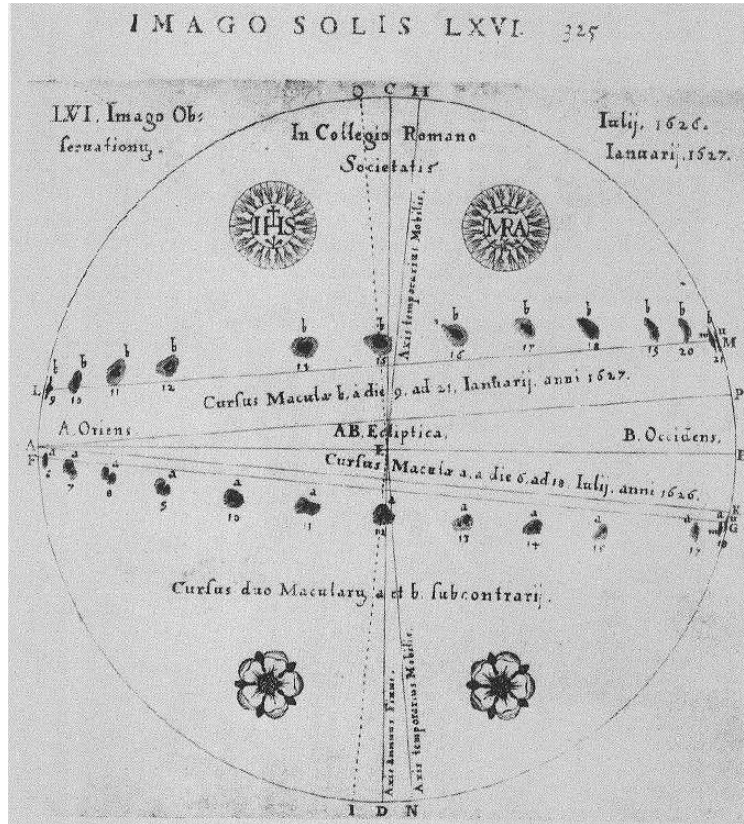 IMAGO SOLIS LXVI. 325
O C H
LVI. Imago Ob=
seruationũ.
In Collegio Romano
Societatis
Iulij. 1626.
Ianuarij. 1627.
IHS
MRA
Axis temporarius Mobilis.
b b b b b b b b b b b b
L 9 10 11 12 14 15 16 17 18 19 20 21 m n M
Cursus Maculæ b, a die 9. ad 21, Ianuarij, anni 1627.
P
A. Oriens
AB. Ecliptica.
B. Occidens.
A E B
Cursus Maculæ a, a die 6. ad 18. Iulij. anni 1626.
K
a a a a a a a a a a a a
F 6 7 8 9 10 11 12 13 14 15 17 18 m n G
Cursus duo Macularũ a et b. subcontrarij.
Axis annuus Fixus.
Axis temporarius Mobilis.
I D N